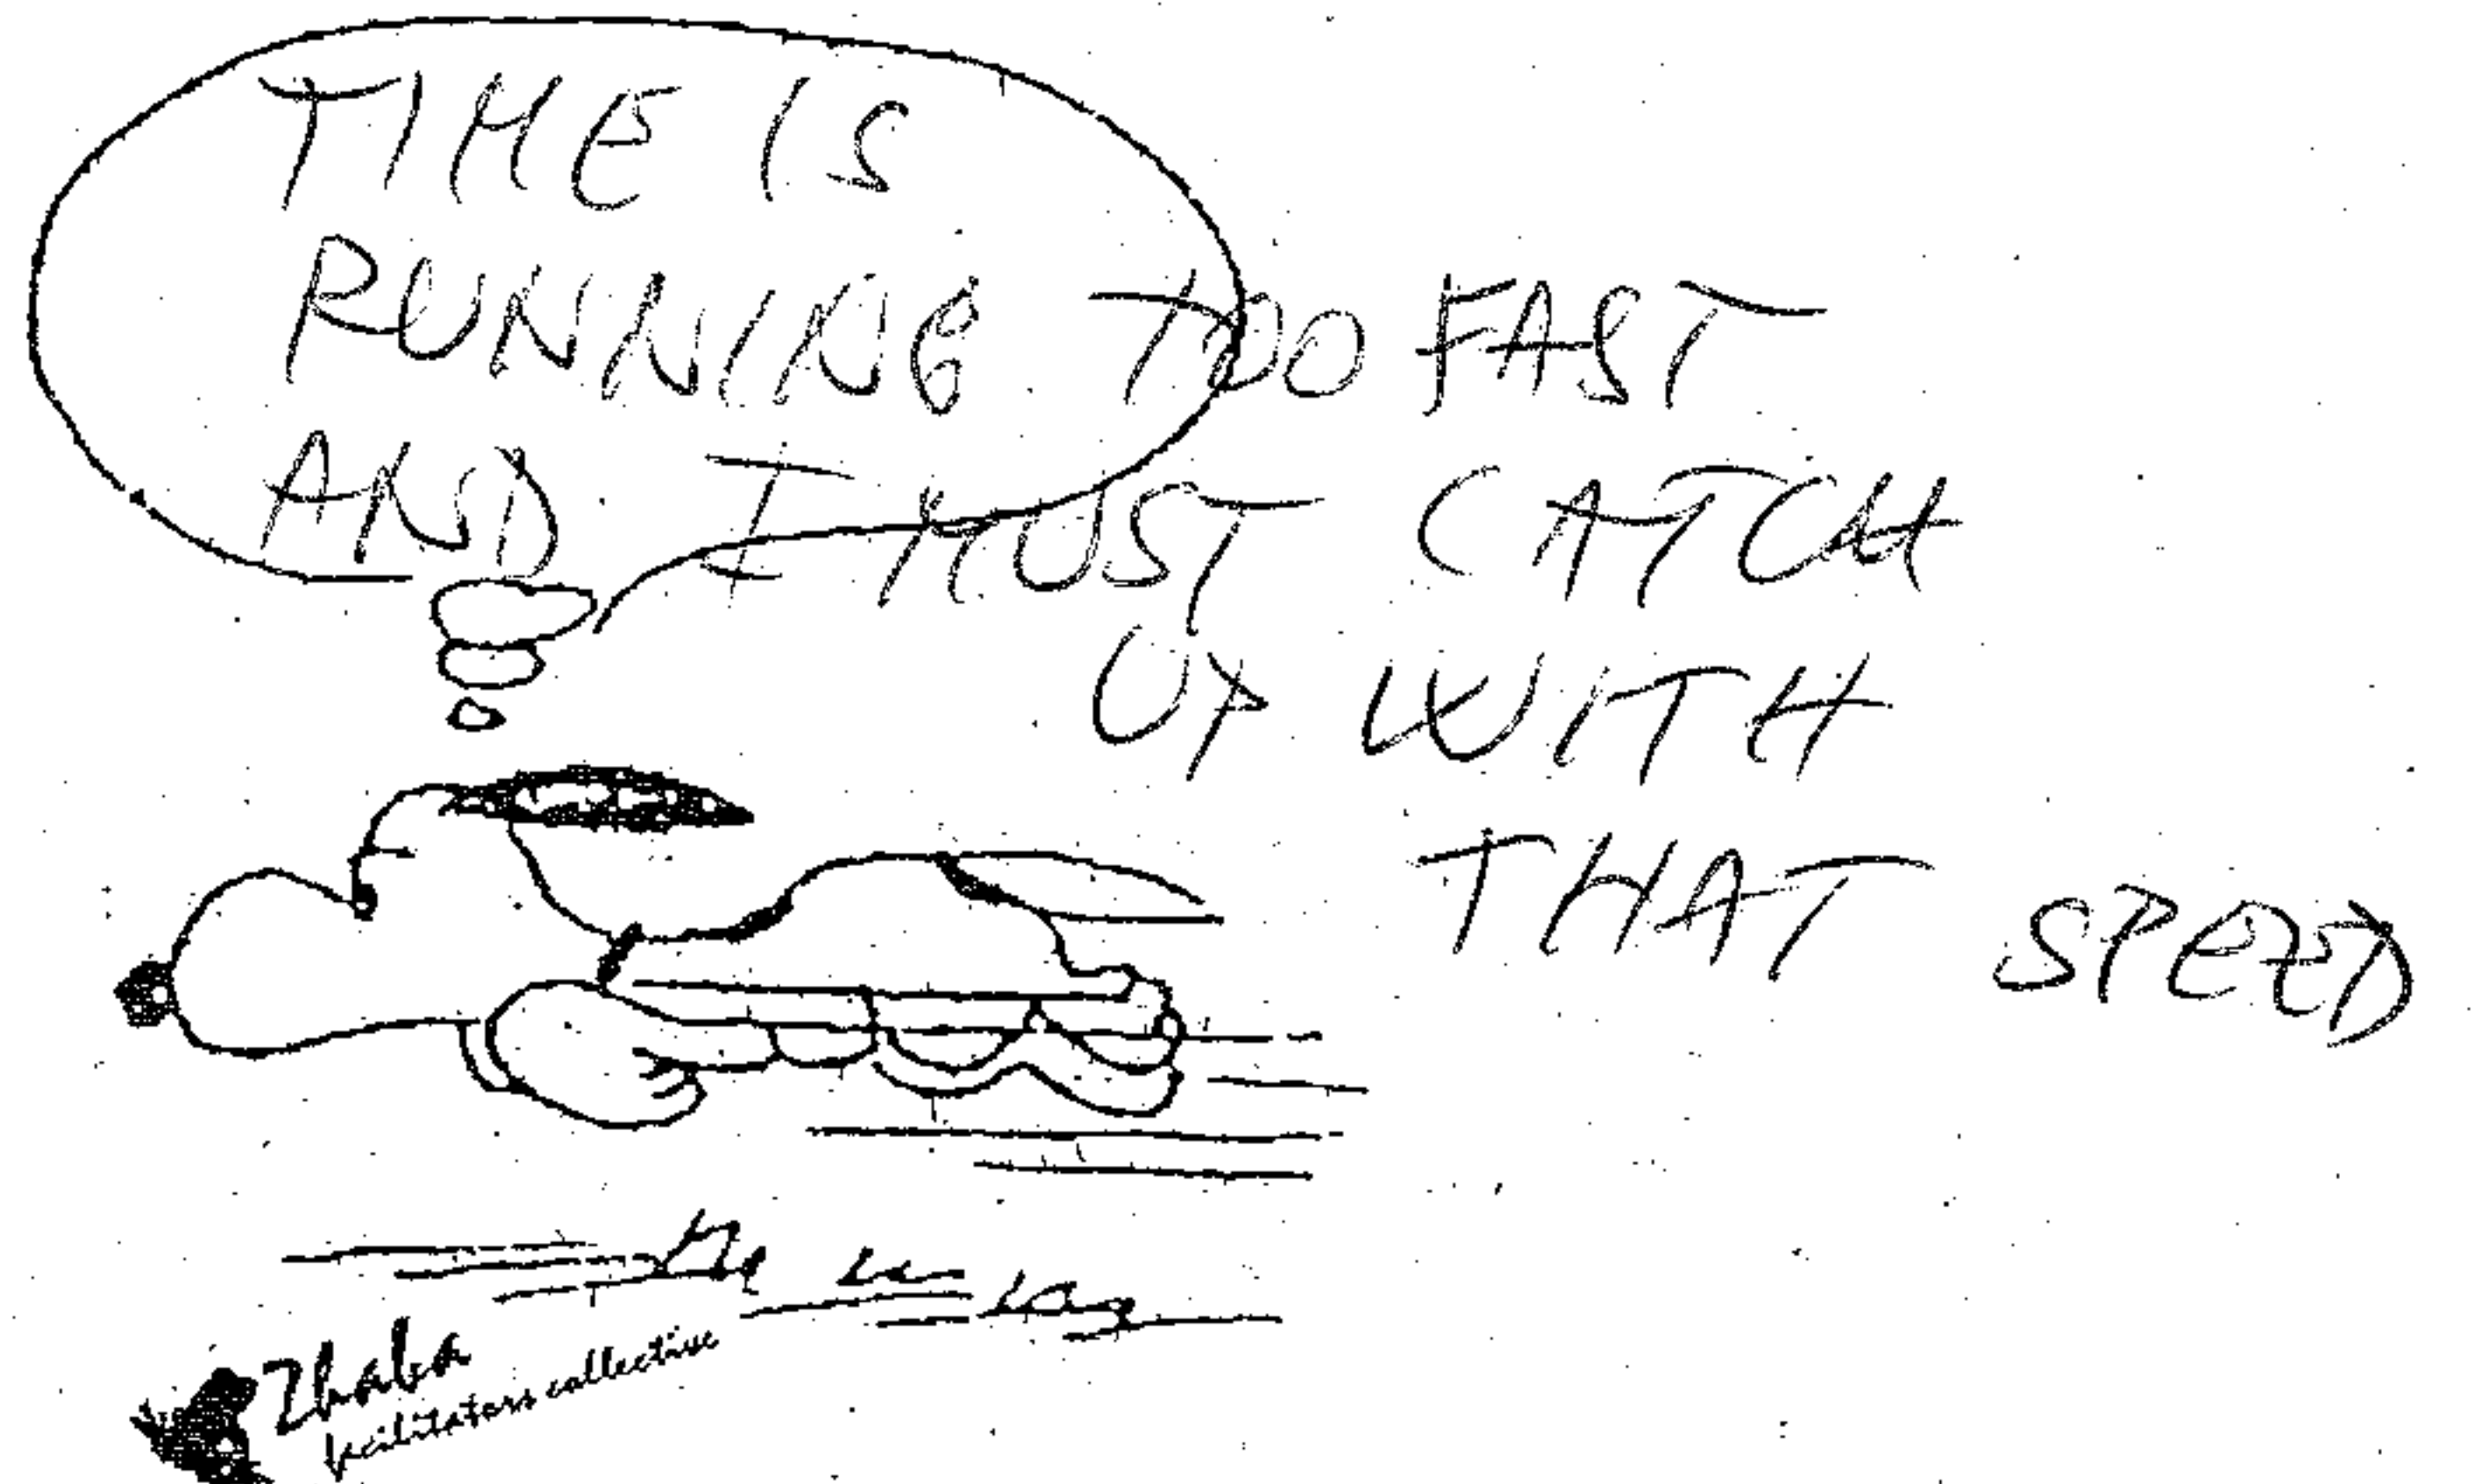 TIME IS
RUNNING TOO FAST
AND I MUST CATCH
UP WITH
THAT SPEED
facilitators collective